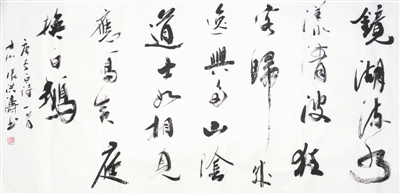 鏡湖流水
漾清波狂
客歸舟
逸興多山陰
道士如相見
應寫黃庭
換白鵝
唐李白詩一首
張洪濤書